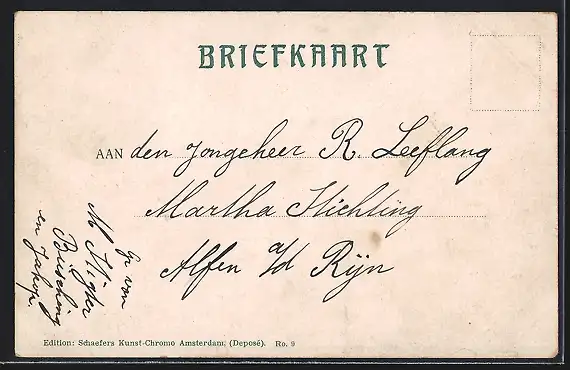 BRIEFKAART
AAN den Jongeheer R. Leeflang
Martha Stichting
Alfen a/d Rijn
Gr van
M
Büsching
en Jakop.
Edition: Schaefers Kunst-Chromo Amsterdam. (Deposé). Ro. 9